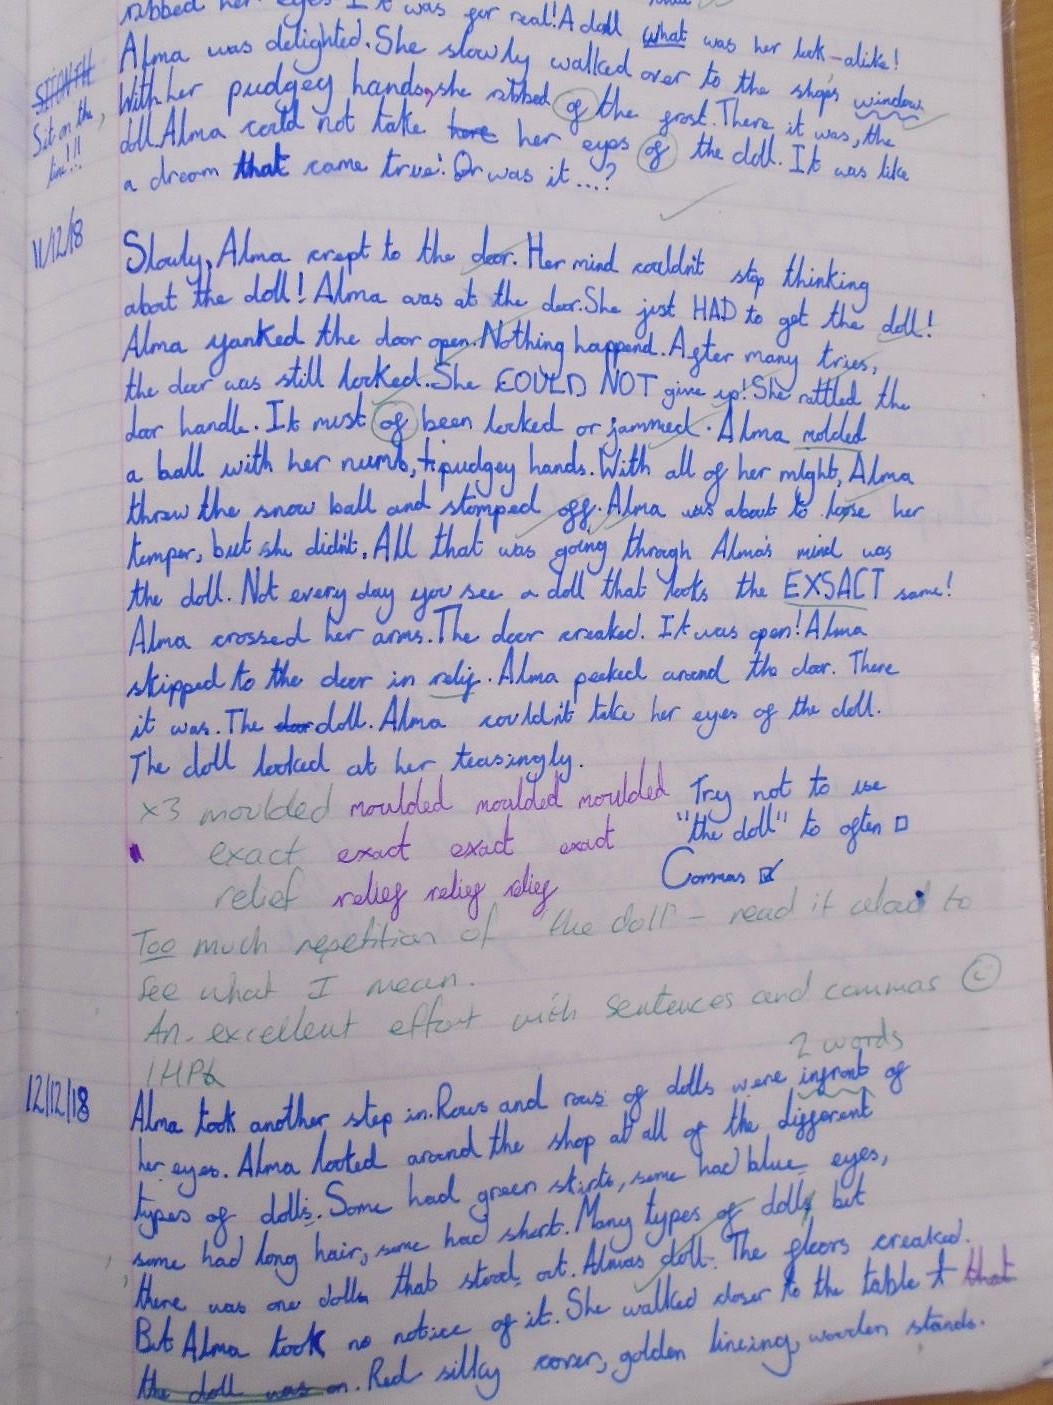 rubbed her eyes. It was for real! A doll what was her look-alike!
Alma was delighted. She slowly walked over to the shops window
With her pudgey hands, she rubbed of the frost. There it was, the
Sit on the line!!!
doll. Alma could not take her eyes of the doll. It was like
a dream that came true! Or was it ...?
11/12/18
Slowly, Alma crept to the door. Her mind couldn't stop thinking
about the doll! Alma was at the door. She just HAD to get the doll!
Alma yanked the door open. Nothing happend. After many tries,
the door was still locked. She COULD NOT give up! She rattled the
door handle. It must of been locked or jammed. Alma molded
a ball with her numb, pudgey hands. With all of her might, Alma
threw the snow ball and stomped off. Alma was about to loose her
temper, but she didn't. All that was going through Alma's mind was
the doll. Not every day you see a doll that looks the EXSACT same!
Alma crossed her arms. The door creaked. It was open! Alma
skipped to the door in relif. Alma peeked around the door. There
it was. The door doll. Alma couldn't take her eyes of the doll.
The doll looked at her teasingly.
x3 moulded moulded moulded moulded Try not to use
exact exact exact exact "the doll" to often
relief relief relief relief Commas
Too much repetition of "the doll" - read it aloud to
see what I mean.
An excellent effort with sentences and commas
1HP
2 words
12/12/18
Alma took another step in. Rows and rows of dolls were infront of
her eyes. Alma looked around the shop at all of the different
types of dolls. Some had green skirts, some had blue eyes,
some had long hair, some had short. Many types of dolls but
there was one doll that stood out. Almas doll. The floors creaked.
But Alma took no notice of it. She walked closer to the table that
the doll was on. Red silky cover, golden lineing, wooden stands.